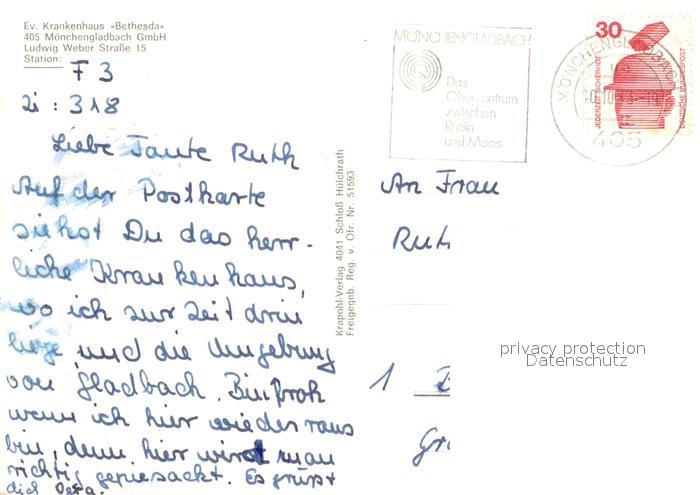 Ev. Krankenhaus »Bethesda«
405 Mönchengladbach GmbH
Ludwig Weber Straße 15
Station: F 3
Zi : 318
Liebe Tante Ruth
Auf der Postkarte
siehst Du das herr-
liche Krankenhaus,
wo ich zur Zeit drin
liege, und die Umgebung
von Gladbach. Bin froh
wenn ich hier wieder raus
bin, denn hier wird man
richtig gepiesackt. Es grüßt
dich
Krapohl-Verlag 4041 Schloß Hülchrath
Freigegeb. Reg. v. Ofr. Nr. 51593
MÖNCHENGLADBACH
Das
Oberzentrum
zwischen
Rhein
und Maas
MÖNCHENGLADBACH
405
30
JEDERZEIT SICHERHEIT
DEUTSCHE BUNDESPOST
An Frau
Ruth
1 B
privacy protection
Datenschutz